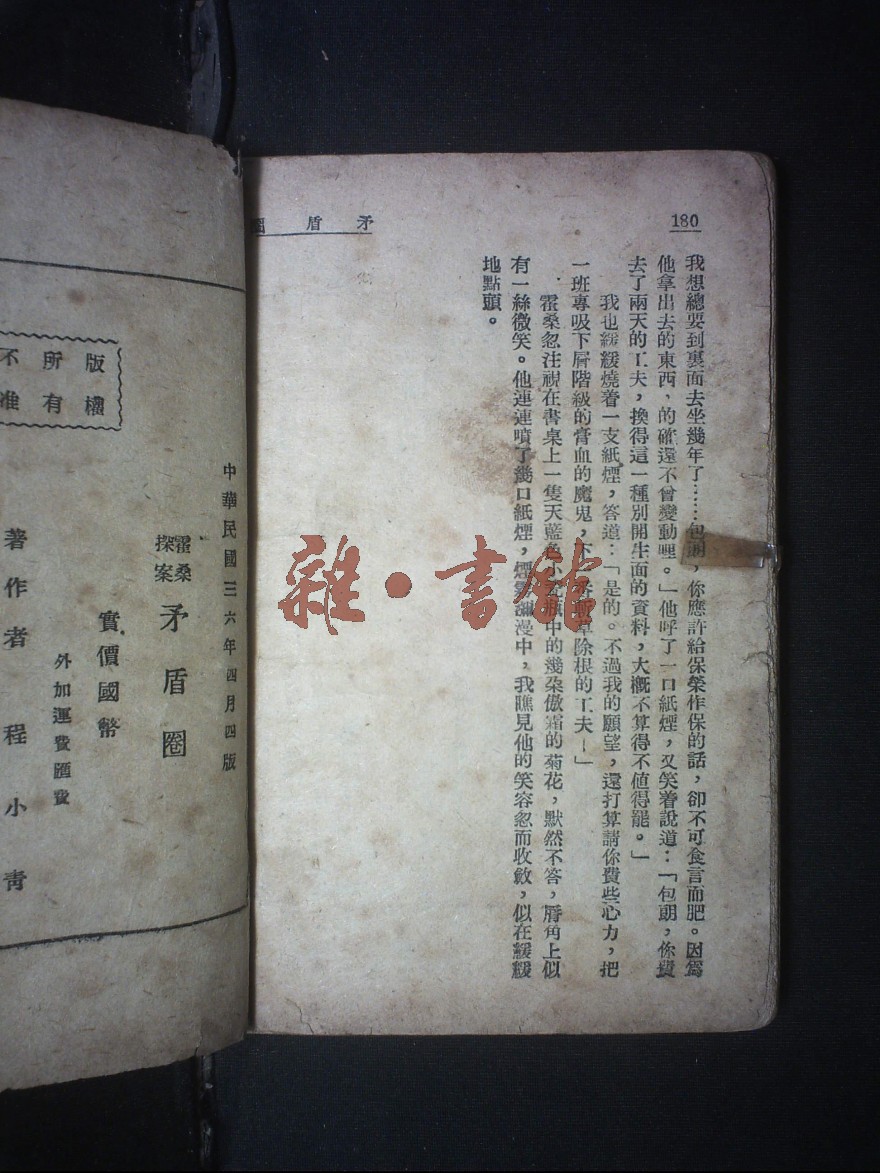 180
矛盾
我想總要到裏面去坐幾年了……包朗，你應許給保榮作保的話，卻不可食言而肥。因爲
他拿出去的東西，的確還不曾變動哩。」他呼了一口紙煙，又笑着說道：「包朗，你費
去了兩天的工夫，換得這一種別開生面的資料，大概不算得不值得罷。」
我也緩緩燒着一支紙煙，答道：「是的。不過我的願望，還打算請你費些心力，把
一班專吸下層階級的膏血的魔鬼，下一番斬草除根的工夫！」
霍桑忽注視在書桌上一隻天藍色小瓶中的幾朶傲霜的菊花，默然不答，脣角上似
有一絲微笑。他連連噴了幾口紙煙，煙霧瀰漫中，我瞧見他的笑容忽而收斂，似在緩緩
地點頭。
雜·書館
中華民國三六年四月四版
霍桑探案
矛盾圈
實價國幣
外加運費匯費
著作者 程小青
版權
所有
不准